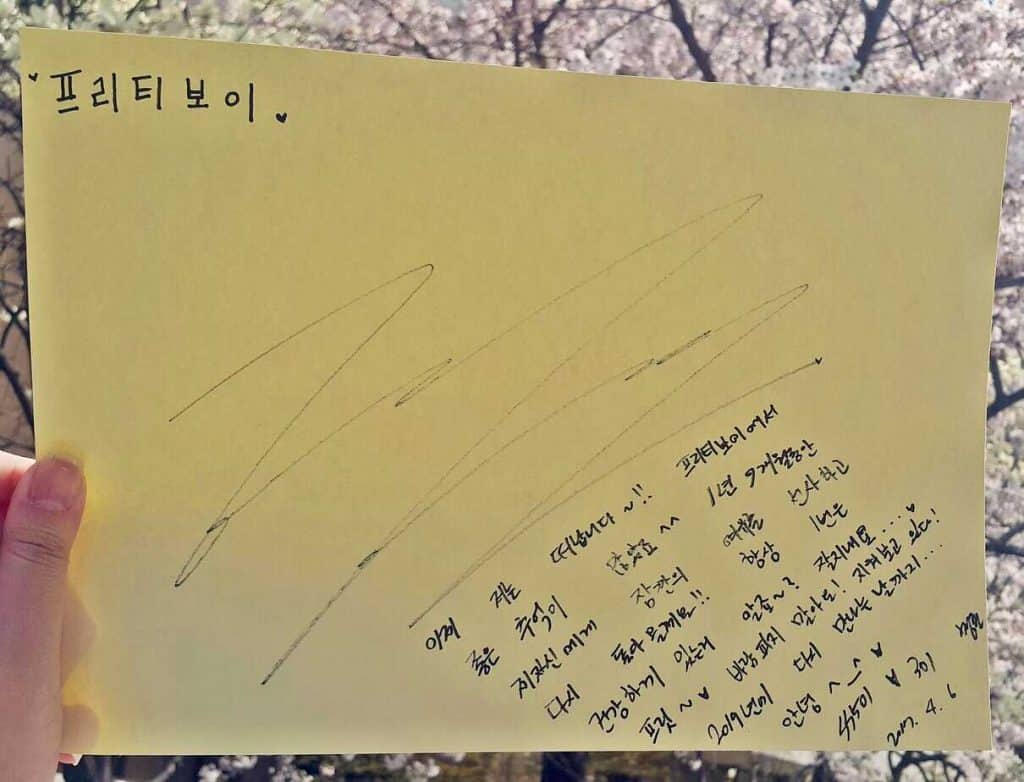 ♥ 프리티보이 ♥
이제 저는 떠납니다~!! 프리티보이에서
좋은 추억이 많았죠 ^^ 1년 9개월동안
제자신에게 잠깐의 여유를 선사하고
다시 돌아올께요!! 항상 1년은
건강하게 있는데 알죠~? 잘지내요....♥
프릿~♥ 바람피지 말아요! 지켜보고 있다!
2019년에 다시 만나는 날까지...
안녕 ^_^ ♥
2017. 4. 6